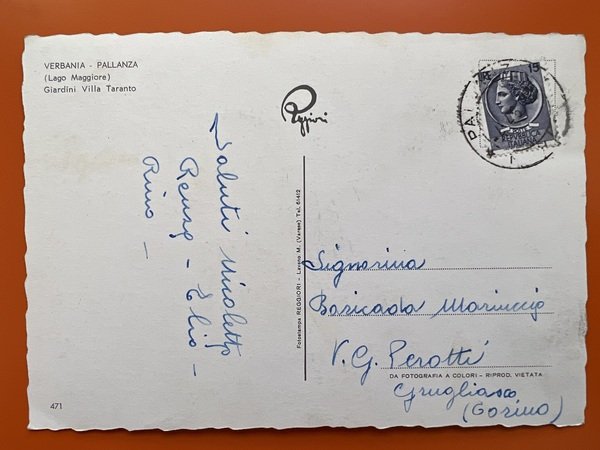 VERBANIA - PALLANZA
(Lago Maggiore)
Giardini Villa Taranto
Reggiori
15
REPUBBLICA
ITALIANA
Saluti Nicoletta
Renzo - Elio -
Rino -
Fotostampa REGGIORI - Laveno M. (Varese) Tel. 61412
Signorina
Baricada Mariuccia
V. G. Perotti
DA FOTOGRAFIA A COLORI - RIPROD. VIETATA
Grugliasco
(Torino)
471